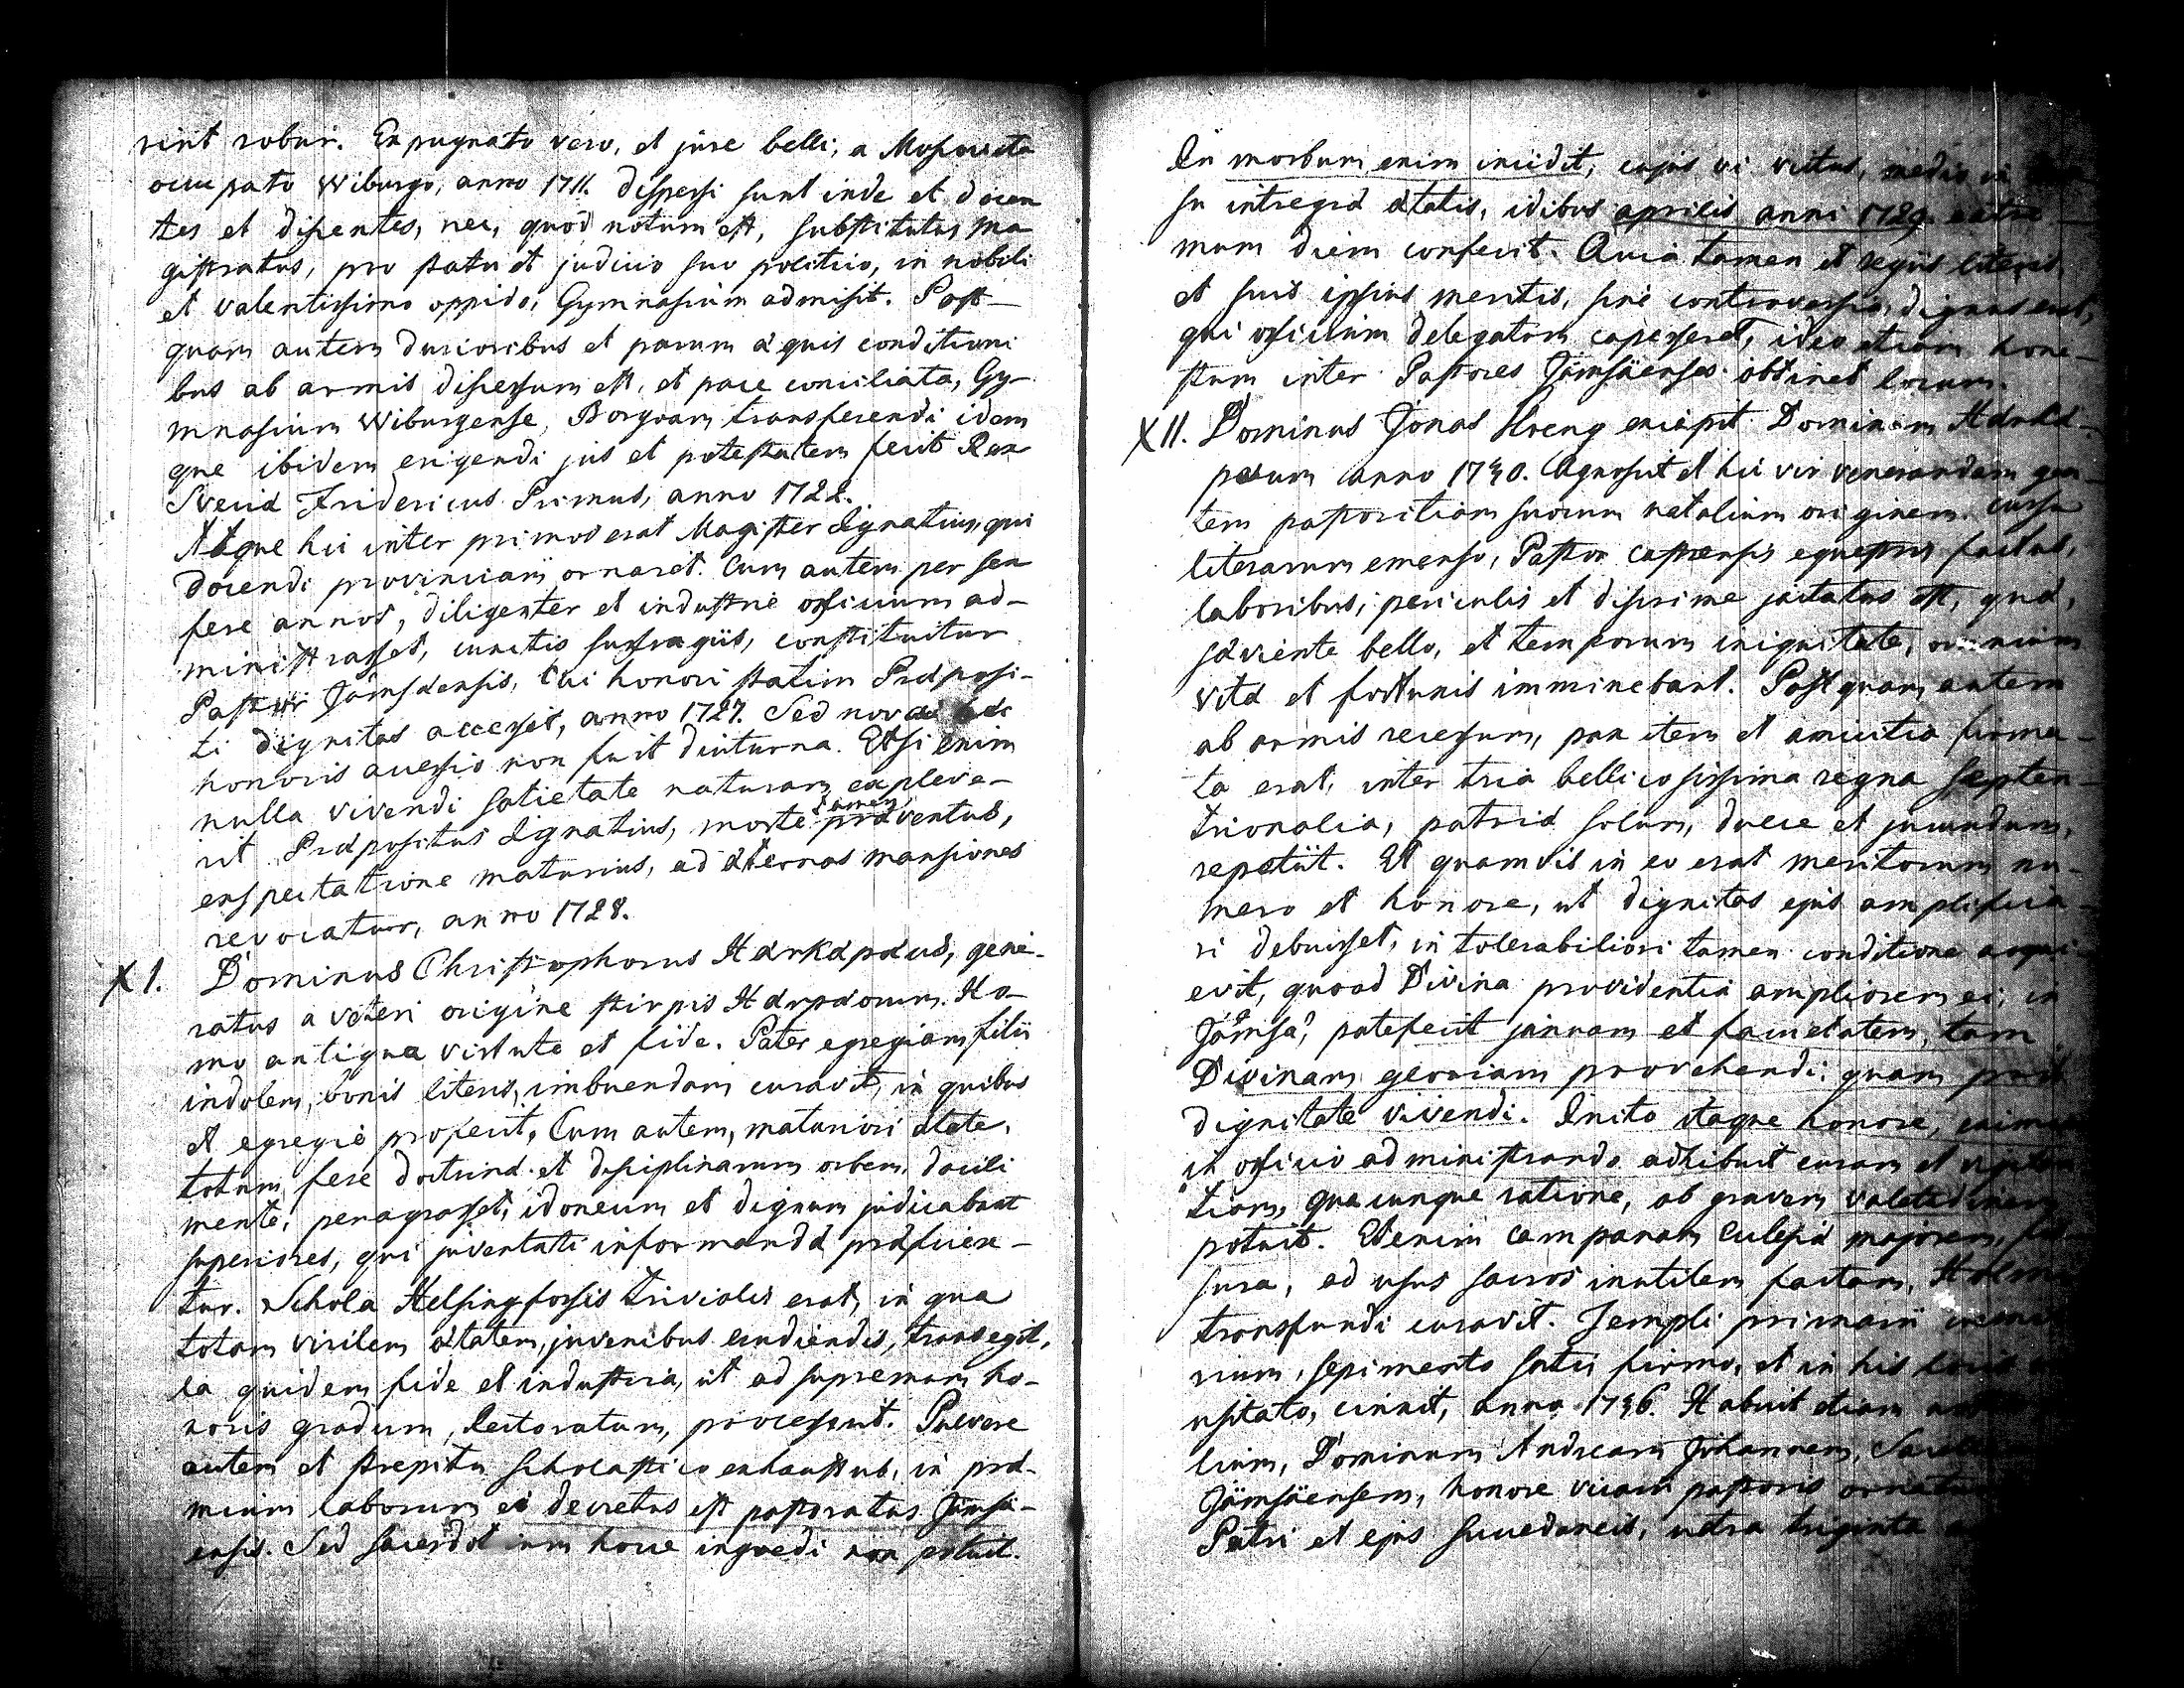 rint robur. Expugnato vero, et jure belli, a Moscovita
occupato Wiburgo, anno 1711. dispersi sunt inde et docen
tes et discentes, nec, quod notum est, substitutus ma
gistratus, pro statu et judicio suo politico, in nobili
et valentissimo oppido, Gymnasium admisit. Post-
quam autem durioribus et parum æquis conditioni
bus ab armis discessum est, et pace conciliata, Gy-
mnasium Wiburgense, Borgoam transferendi idem
que ibidem erigendi jus et potestatem fecit Rex
Sveciæ Fridericus Primus, anno 1722.
Atque hic inter primos erat Magister Lignatius, qui
docendi provinciam ornaret. Cum autem per sex
fere annos, diligenter et industrie officium ad-
ministrasset, cunctis suffragiis, constituitur
Pastor Jämsäensis, cui honori statim Præposi-
ti dignitas accessit, anno 1727. Sed novæ
honoris accessio non fuit diuturna. Etsi enim
nulla vivendi satietate naturam expleve-
rit Præpositus Lignatius, morte tamen præventus,
exspectatione maturius, ad æternas mansiones
revocatur, anno 1728.
XI. Dominus Christophorus Härkäpæus, gene-
ratus a veteri origine stirpis Härkpæorum. Ho-
mo antiqua virtute et fide. Pater egregiam filii
indolem, bonis literis, imbuendam curavit, in quibus
et egregie profecit. Cum autem, maturiori ætate,
totum fere doctrinæ et disciplinarum orbem, docili
mente, peragrasset, idoneum et dignum judicabant
superiores, qui juventuti informandæ præficere-
tur. Schola Helsingforsis trivialis erat, in qua
totam virilem ætatem, juvenibus erudiendis, transegit,
ea quidem fide et industria, ut ad supremum ho-
noris gradum, Rectoratum, processerit. Pulvere
autem et strepitu scholastico exhaustus, in præ-
mium laborum ei decretus est pastoratus Jämsä-
ensis. Sed sacerdotium hocce ingredi non potuit.
In morbum enim incidit, cujus vi victus, medio in
su integræ ætatis, idibus aprilis anni 1729. extre-
mum diem confecit. Quia tamen et regiis literis,
et suis ipsius meritis, sine controversia, dignus erat,
qui officium delegatum capesseret, ideo etiam hone-
stum inter Pastores Jämsäenses obtinet locum.
XII. Dominus Jonas Hoeng excepit Dominum Härkä-
pæum anno 1730. Agnoscit et hic vir venerandam gen-
tem pastoritiam suorum natalium originem. Cursu
literarum emenso, Pastor castrensis equestris factus,
laboribus, periculis et discrimine jactatus est, quæ,
sæviente bello, et temporum iniquitate, omnium
vitæ et fortunis imminebant. Postquam autem
ab armis recessum, pax item et amicitia firma-
ta erat, inter tria bellicosissima regna septen-
trionalia, patriæ solum, dulce et jucundum,
repetiit. Et quamvis in eo erat meritorum nu-
mero et honore, ut dignitas ejus amplifica-
ri debuisset, in tolerabiliori tamen conditione acqui-
evit, quoad Divina providentia ampliorem ei, in
Jämsä, patefecit januam et facultatem, tam
Divinam gloriam provehendi, quam
dignitate vivendi. Inito itaque honore,
in officio administrando adhibuit curam et
tiam, quacunque ratione, ob gravem valetudinem
potuit. Etenim campanam Ecclesiæ majorem,
sura, ad usus sacros inutilem factam,
transfundi curavit. Templi primarii
rium, sepimento satis firmo, et in his locis
usitato, cinxit, anno 1736. Habuit etiam
lium, Dominum Andream Johannem,
Jämsäensem, honore vicarii pastoris
Patri et ejus succedaneis, ultra triginta